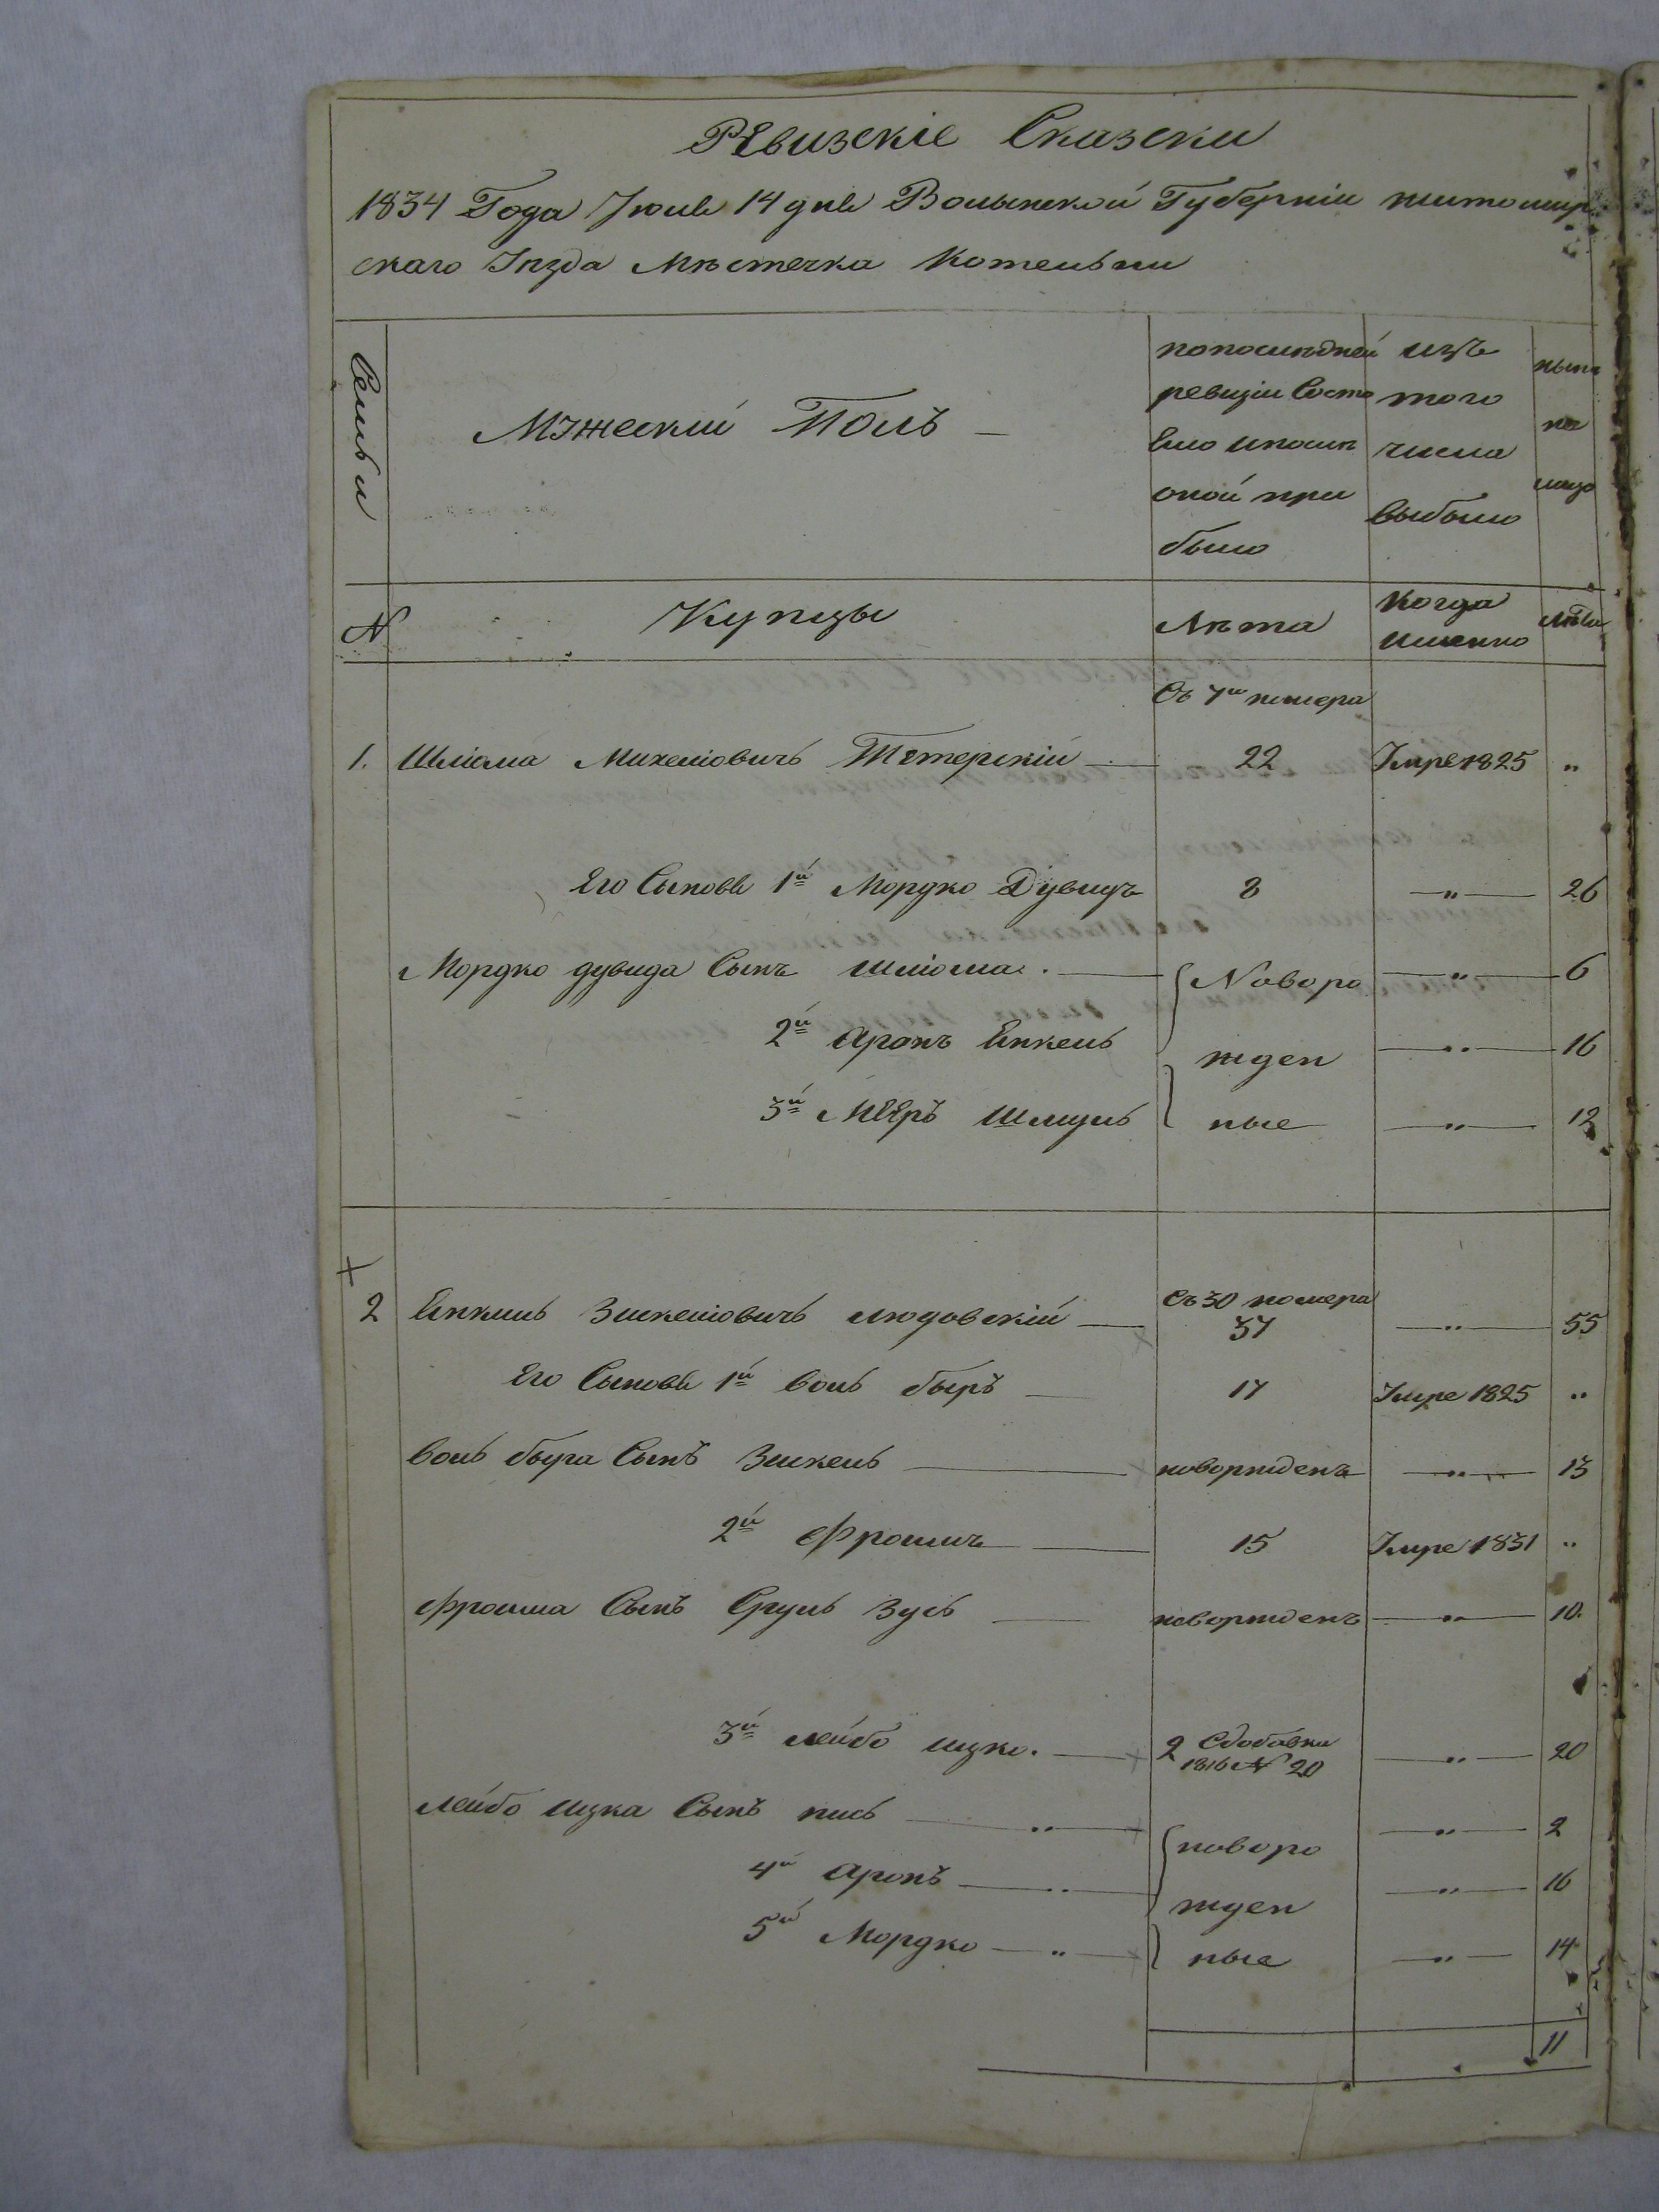 Ревизскіе Сказски
1834 Года Июля 14 дня Волынской Губерніи житомир
скаго Уѣзда Мѣстечка Котельни
Семьи
Мужескій Полъ —
попослѣдней
ревизіи Состо
яло ипослѣ
оной при
было
изъ
того
числа
выбыло
нынѣ
на
лицо
№
Купцы
Лѣта
Когда
именно
Лѣта
Съ 7го номера
1. Шліома Михеліовичъ Тетерскій — 22 Умре 1825 "
Его Сыновя 1й Мордко Дувидъ 8 — " — 26
Мордко дувида Сынъ шліома. — Новоро — " — 6
2й Аронъ Янкель жден — " — 16
3й Мееръ Шмуль ные — " — 12
2 Янкель Зискеліовичъ людовскій — Съ 30 номера 37 — " — 55
Его Сыновя 1й воль беръ — 17 Умре 1825 "
Зискель — новорожденъ — " — 13
2й Фроимъ — 15 Умре 1831 "
Фроима Сынъ Сруль Зусь — новорожденъ — " — 10.
3й лейбо ицко. — 2 Сдобавки 1816 № 20 — " — 20
лейбо ицка Сынъ — " — новоро — " — 2
4й Аронъ — " — жден — " — 16
5й Мордко — " — ные — " — 14
11